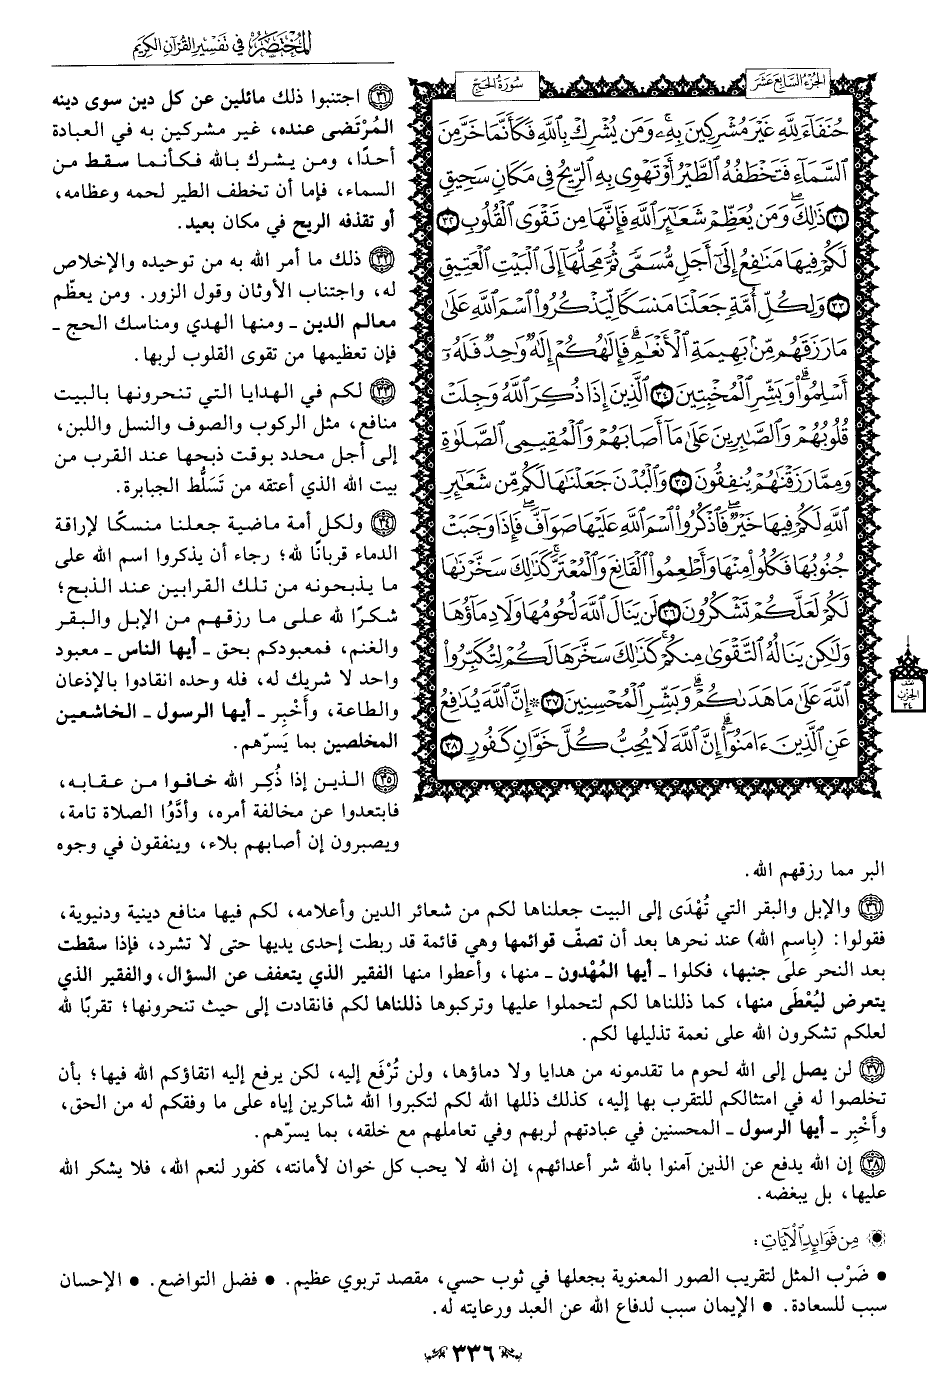 المختصر في تفسير القرآن الكريم
الجزء السابع عشر
سورة الحج
حُنَفَآءَ لِلَّهِ غَيْرَ مُشْرِكِينَ بِهِۦۚ وَمَن يُشْرِكْ بِٱللَّهِ فَكَأَنَّمَا خَرَّ مِنَ
ٱلسَّمَآءِ فَتَخْطَفُهُ ٱلطَّيْرُ أَوْ تَهْوِي بِهِ ٱلرِّيحُ فِي مَكَانٖ سَحِيقٖ
٣١ ذَٰلِكَۖ وَمَن يُعَظِّمْ شَعَٰٓئِرَ ٱللَّهِ فَإِنَّهَا مِن تَقْوَى ٱلْقُلُوبِ ٣٢
لَكُمْ فِيهَا مَنَٰفِعُ إِلَىٰٓ أَجَلٖ مُّسَمّٗى ثُمَّ مَحِلُّهَآ إِلَى ٱلْبَيْتِ ٱلْعَتِيقِ
٣٣ وَلِكُلِّ أُمَّةٖ جَعَلْنَا مَنسَكٗا لِّيَذْكُرُواْ ٱسْمَ ٱللَّهِ عَلَىٰ
مَا رَزَقَهُم مِّنۢ بَهِيمَةِ ٱلْأَنْعَٰمِۗ فَإِلَٰهُكُمْ إِلَٰهٞ وَٰحِدٞ فَلَهُۥٓ
أَسْلِمُواْۗ وَبَشِّرِ ٱلْمُخْبِتِينَ ٣٤ ٱلَّذِينَ إِذَا ذُكِرَ ٱللَّهُ وَجِلَتْ
قُلُوبُهُمْ وَٱلصَّٰبِرِينَ عَلَىٰ مَآ أَصَابَهُمْ وَٱلْمُقِيمِي ٱلصَّلَوٰةِ
وَمِمَّا رَزَقْنَٰهُمْ يُنفِقُونَ ٣٥ وَٱلْبُدْنَ جَعَلْنَٰهَا لَكُم مِّن شَعَٰٓئِرِ
ٱللَّهِ لَكُمْ فِيهَا خَيْرٞۖ فَٱذْكُرُواْ ٱسْمَ ٱللَّهِ عَلَيْهَا صَوَآفَّۖ فَإِذَا وَجَبَتْ
جُنُوبُهَا فَكُلُواْ مِنْهَا وَأَطْعِمُواْ ٱلْقَانِعَ وَٱلْمُعْتَرَّۚ كَذَٰلِكَ سَخَّرْنَٰهَا
لَكُمْ لَعَلَّكُمْ تَشْكُرُونَ ٣٦ لَن يَنَالَ ٱللَّهَ لُحُومُهَا وَلَا دِمَآؤُهَا
وَلَٰكِن يَنَالُهُ ٱلتَّقْوَىٰ مِنكُمْۚ كَذَٰلِكَ سَخَّرَهَا لَكُمْ لِتُكَبِّرُواْ
ٱللَّهَ عَلَىٰ مَا هَدَىٰكُمْۗ وَبَشِّرِ ٱلْمُحْسِنِينَ ٣٧ ۞إِنَّ ٱللَّهَ يُدَٰفِعُ
عَنِ ٱلَّذِينَ ءَامَنُوٓاْۗ إِنَّ ٱللَّهَ لَا يُحِبُّ كُلَّ خَوَّانٖ كَفُورٍ ٣٨
٣١ اجتنبوا ذلك مائلين عن كل دين سوى دينه
المُرْتَضى عنده، غير مشركين به في العبادة
أحدًا، ومن يشرك بالله فكأنما سقط من
السماء، فإما أن تخطف الطير لحمه وعظامه،
أو تقذفه الريح في مكان بعيد.
٣٢ ذلك ما أمر الله به من توحيده والإخلاص
له، واجتناب الأوثان وقول الزور. ومن يعظّم
معالم الدين ـ ومنها الهدي ومناسك الحج ـ
فإن تعظيمها من تقوى القلوب لربها.
٣٣ لكم في الهدايا التي تنحرونها بالبيت
منافع، مثل الركوب والصوف والنسل واللبن،
إلى أجل محدد بوقت ذبحها عند القرب من
بيت الله الذي أعتقه من تَسَلُّط الجبابرة.
٣٤ ولكل أمة ماضية جعلنا منسكًا لإراقة
الدماء قربانًا لله؛ رجاء أن يذكروا اسم الله على
ما يذبحونه من تلك القرابين عند الذبح؛
شكرًا لله على ما رزقهم من الإبل والبقر
والغنم، فمعبودكم بحق ـ أيها الناس ـ معبود
واحد لا شريك له، فله وحده انقادوا بالإذعان
والطاعة، وأَخْبِر ـ أيها الرسول ـ الخاشعين
المخلصين بما يَسرّهم.
٣٥ الذين إذا ذُكِر الله خافوا من عقابه،
فابتعدوا عن مخالفة أمره، وأدَّوُا الصلاة تامة،
ويصبرون إن أصابهم بلاء، وينفقون في وجوه
البر مما رزقهم الله.
٣٦ والإبل والبقر التي تُهْدَى إلى البيت جعلناها لكم من شعائر الدين وأعلامه، لكم فيها منافع دينية ودنيوية،
فقولوا: (بِاسمِ الله) عند نحرها بعد أن تصفّ قوائمها وهي قائمة قد ربطت إحدى يديها حتى لا تشرد، فإذا سقطت
بعد النحر على جنبها، فكلوا ـ أيها المُهْدون ـ منها، وأعطوا منها الفقير الذي يتعفف عن السؤال، والفقير الذي
يتعرض ليُعْطَى منها، كما ذللناها لكم لتحملوا عليها وتركبوها ذللناها لكم فانقادت إلى حيث تنحرونها؛ تقربًا لله
لعلكم تشكرون الله على نعمة تذليلها لكم.
٣٧ لن يصل إلى الله لحوم ما تقدمونه من هدايا ولا دماؤها، ولن تُرْفَع إليه، لكن يرفع إليه اتقاؤكم الله فيها؛ بأن
تخلصوا له في امتثالكم للتقرب بها إليه، كذلك ذللها الله لكم لتكبروا الله شاكرين إياه على ما وفقكم له من الحق،
وأَخْبِر ـ أيها الرسول ـ المحسنين في عبادتهم لربهم وفي تعاملهم مع خلقه، بما يسرّهم.
٣٨ إن الله يدفع عن الذين آمنوا بالله شر أعدائهم، إن الله لا يحب كل خوان لأمانته، كفور لنعم الله، فلا يشكر الله
عليها، بل يبغضه.
مِن فَوَائِدِ الآيَاتِ:
• ضَرْب المثل لتقريب الصور المعنوية بجعلها في ثوب حسي، مقصد تربوي عظيم. • فضل التواضع. • الإحسان
سبب للسعادة. • الإيمان سبب لدفاع الله عن العبد ورعايته له.
٣٣٦